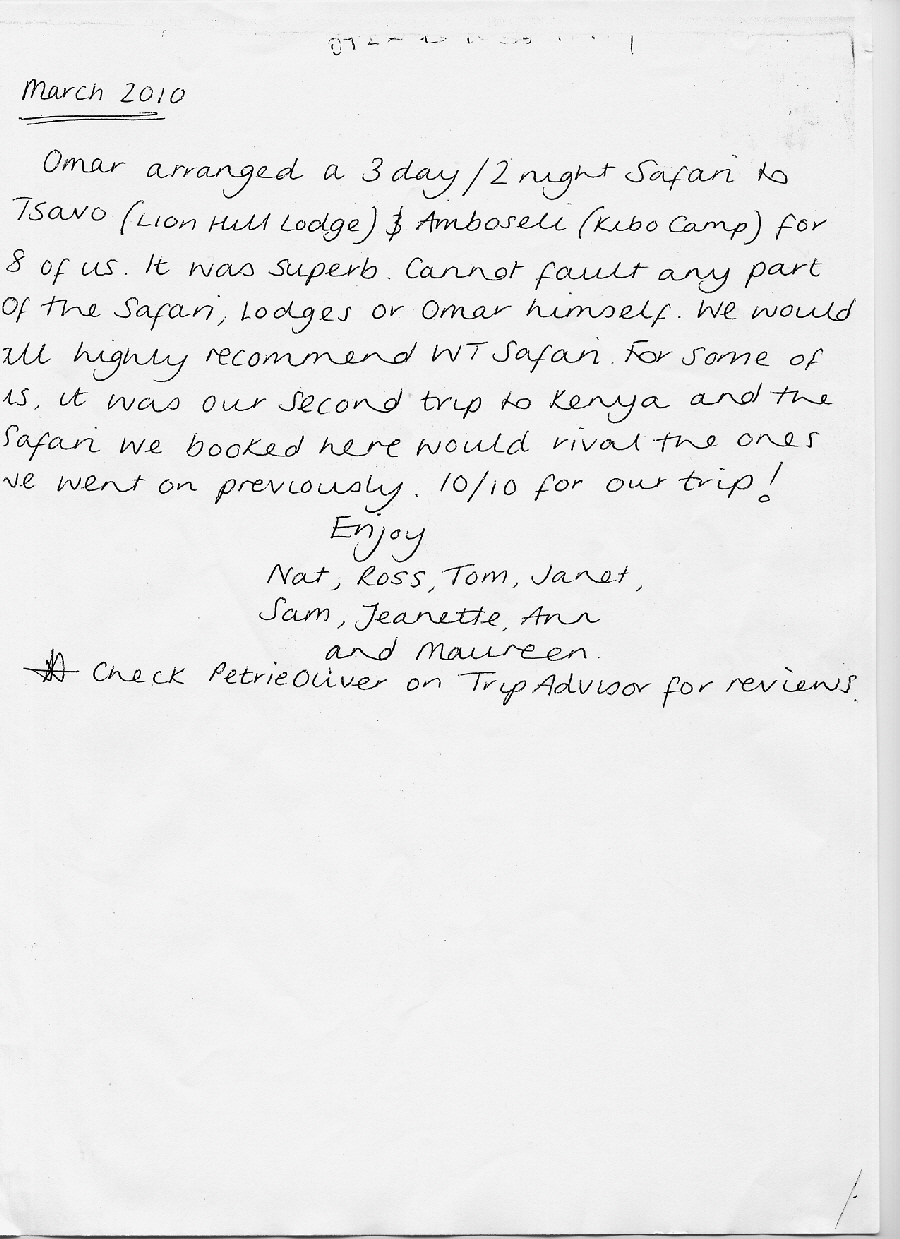 March 2010
Omar arranged a 3 day/2 night Safari to
Tsavo (Lion Hill Lodge) & Amboseli (Kibo Camp) for
8 of us. It was superb. Cannot fault any part
Of the Safari, Lodges or Omar himself. We would
all highly recommend WT Safari. For some of
us, it was our second trip to Kenya and the
Safari we booked here would rival the ones
we went on previously. 10/10 for our trip!
Enjoy
Nat, Ross, Tom, Janet,
Sam, Jeanette, Ann
and Maureen.
Check PetrieOliver on TripAdvisor for reviews.